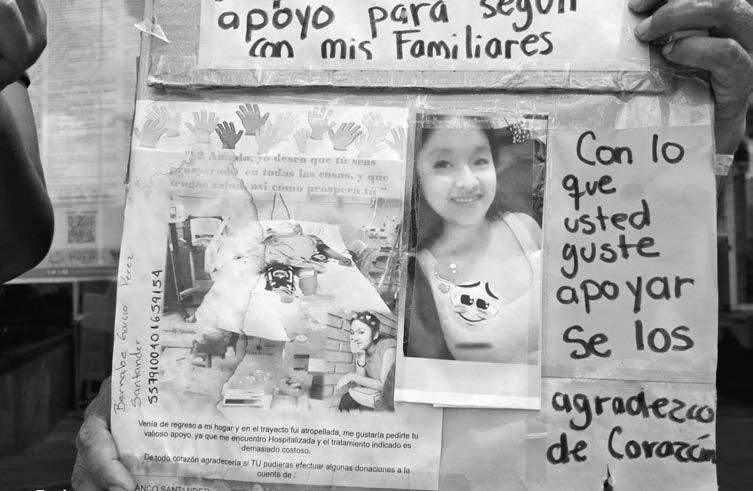 apoyo para seguir
con mis Familiares
" 2 Amado, yo deseo que tú seas
prosperado en todas las cosas, y que
tengas salud, así como prospera tú "
Bernabe Garcia Perez
Santander
5579100401659154
Venía de regreso a mi hogar y en el trayecto fui atropellada, me gustaría pedirte tu
valioso apoyo, ya que me encuentro Hospitalizada y el tratamiento indicado es
demasiado costoso.
De todo corazón agradecería si TU pudieras efectuar algunas donaciones a la
cuenta de
Con lo
que
usted
guste
apoyar
se los
agradezco
de Corazón